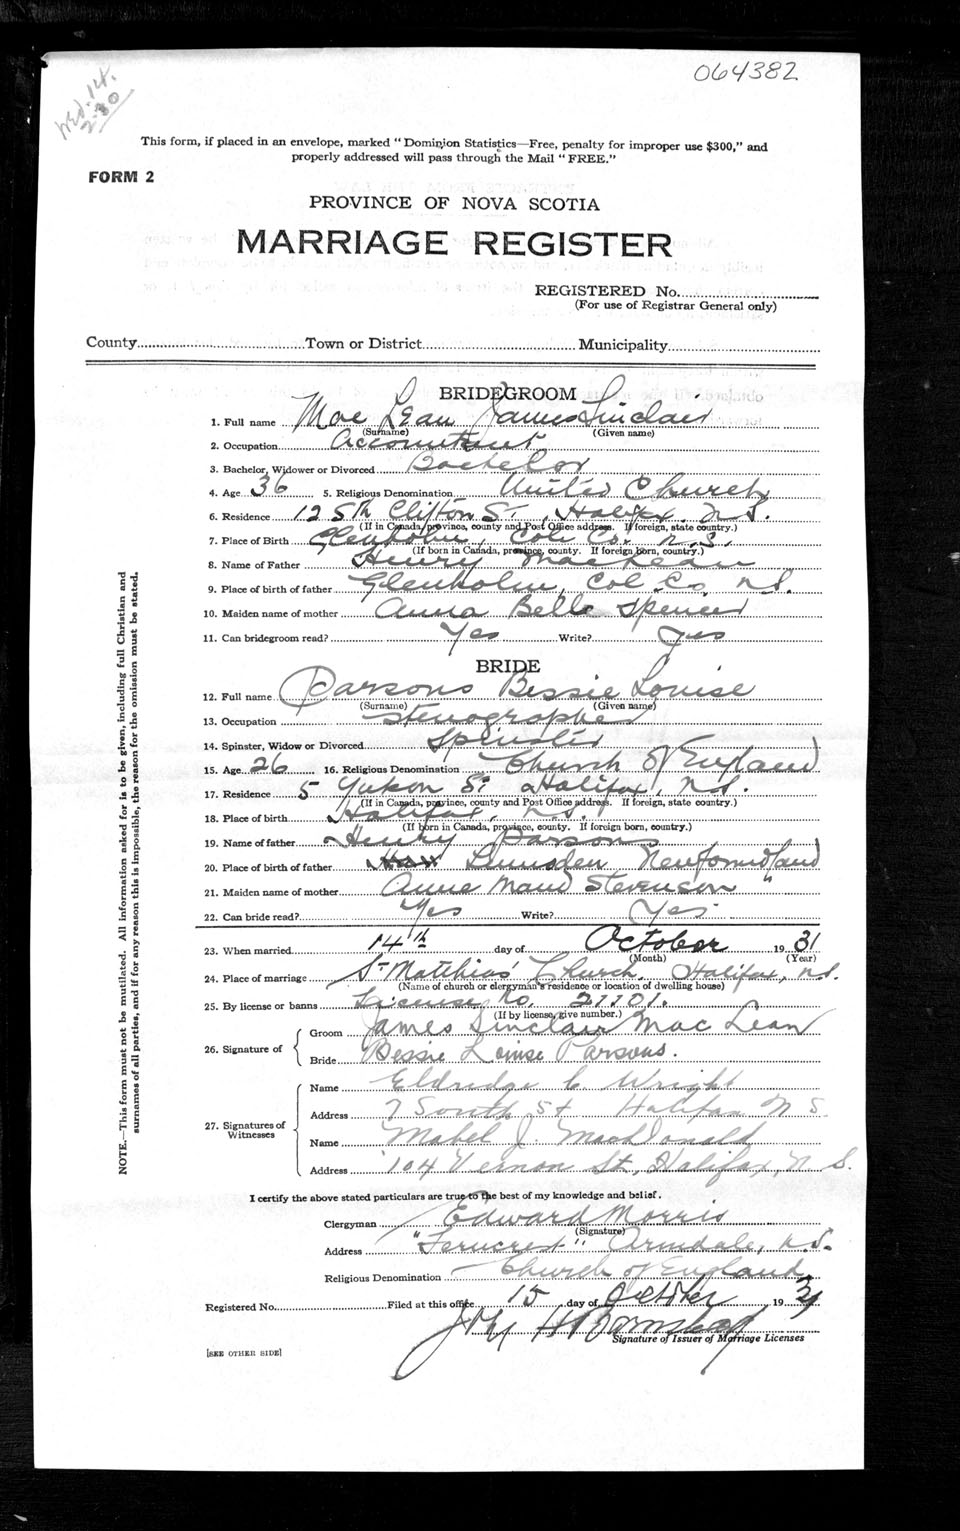 064382
Wed. 14.
2.30
This form, if placed in an envelope, marked "Dominion Statistics—Free, penalty for improper use $300," and
properly addressed will pass through the Mail "FREE."
FORM 2
PROVINCE OF NOVA SCOTIA
MARRIAGE REGISTER
REGISTERED No.
(For use of Registrar General only)
County Town or District Municipality
BRIDEGROOM
1. Full name Mac Lean James Sinclair
(Surname) (Given name)
2. Occupation Accountant
3. Bachelor, Widower or Divorced Bachelor
4. Age 36 5. Religious Denomination United Church
6. Residence 125 Clifton St, Halifax, N.S.
(If in Canada, province, county and Post Office address. If foreign, state country.)
7. Place of Birth Glenholm, Col. Co. N.S.
(If born in Canada, province, county. If foreign born, country.)
8. Name of Father Henry MacLean
9. Place of birth of father Glenholm, Col. Co. N.S.
10. Maiden name of mother Anna Belle Spencer
11. Can bridegroom read? Yes Write? Yes
BRIDE
12. Full name Parsons Bessie Louise
(Surname) (Given name)
13. Occupation Stenographer
14. Spinster, Widow or Divorced Spinster
15. Age 26 16. Religious Denomination Church of England
17. Residence 5 Yukon St Halifax, N.S.
(If in Canada, province, county and Post Office address. If foreign, state country.)
18. Place of birth Halifax, N.S.
(If born in Canada, province, county. If foreign born, country.)
19. Name of father Henry Parsons
20. Place of birth of father Lumsden Newfoundland
21. Maiden name of mother Anne Maud Stevenson "
22. Can bride read? Yes Write? Yes
23. When married 14th day of October 1931
(Month) (Year)
24. Place of marriage St Matthias' Church, Halifax, N.S.
(Name of church or clergyman's residence or location of dwelling house)
25. By license or banns License No. 21101.
(If by license, give number.)
26. Signature of
Groom James Sinclair MacLean
Bride Bessie Louise Parsons.
27. Signatures of Witnesses
Name Eldridge C Wright
Address 7 South St Halifax N S
Name Mabel J. MacDonald
Address 104 Vernon St, Halifax, N S.
I certify the above stated particulars are true to the best of my knowledge and belief.
Clergyman Edward Morris
(Signature)
Address "Ferncrest" Armdale, N.S.
Religious Denomination Church of England
Registered No. Filed at this office 15 day of October 1931
Signature of Issuer of Marriage Licenses
[SEE OTHER SIDE]
NOTE.—This form must not be mutilated. All information asked for is to be given, including full Christian and
surnames of all parties, and if for any reason this is impossible, the reason for the omission must be stated.